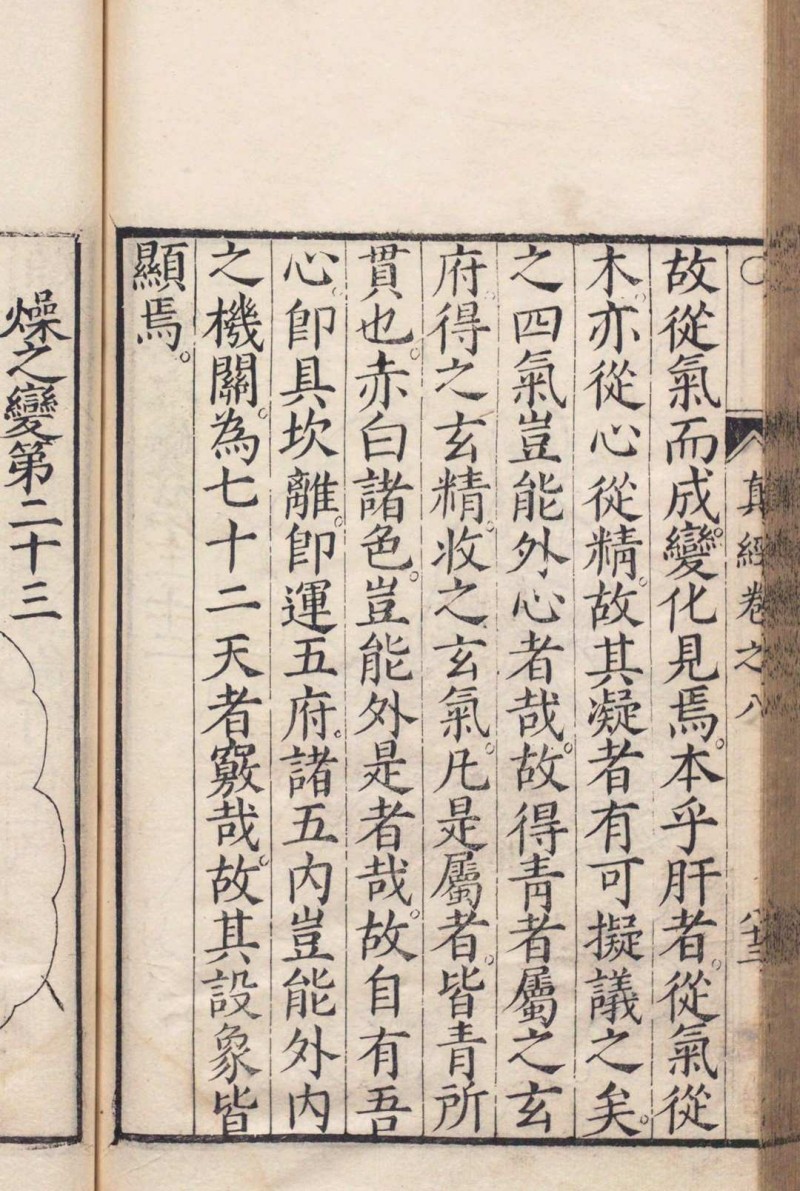 真經卷之八 八十三
故從氣而成。變化見焉。本乎肝者。從氣從
木。亦從心從精。故其凝者有可擬議之矣。
之四氣豈能外心者哉。故得青者屬之玄
府得之玄精。收之玄氣。凡是屬者。皆青所
貫也。赤白諸色。豈能外是者哉。故自有吾
心。卽具坎離。卽運五府。諸五内豈能外内
之機關。為七十二天者竅哉。故其設象皆
顯焉。
燥之變第二十三